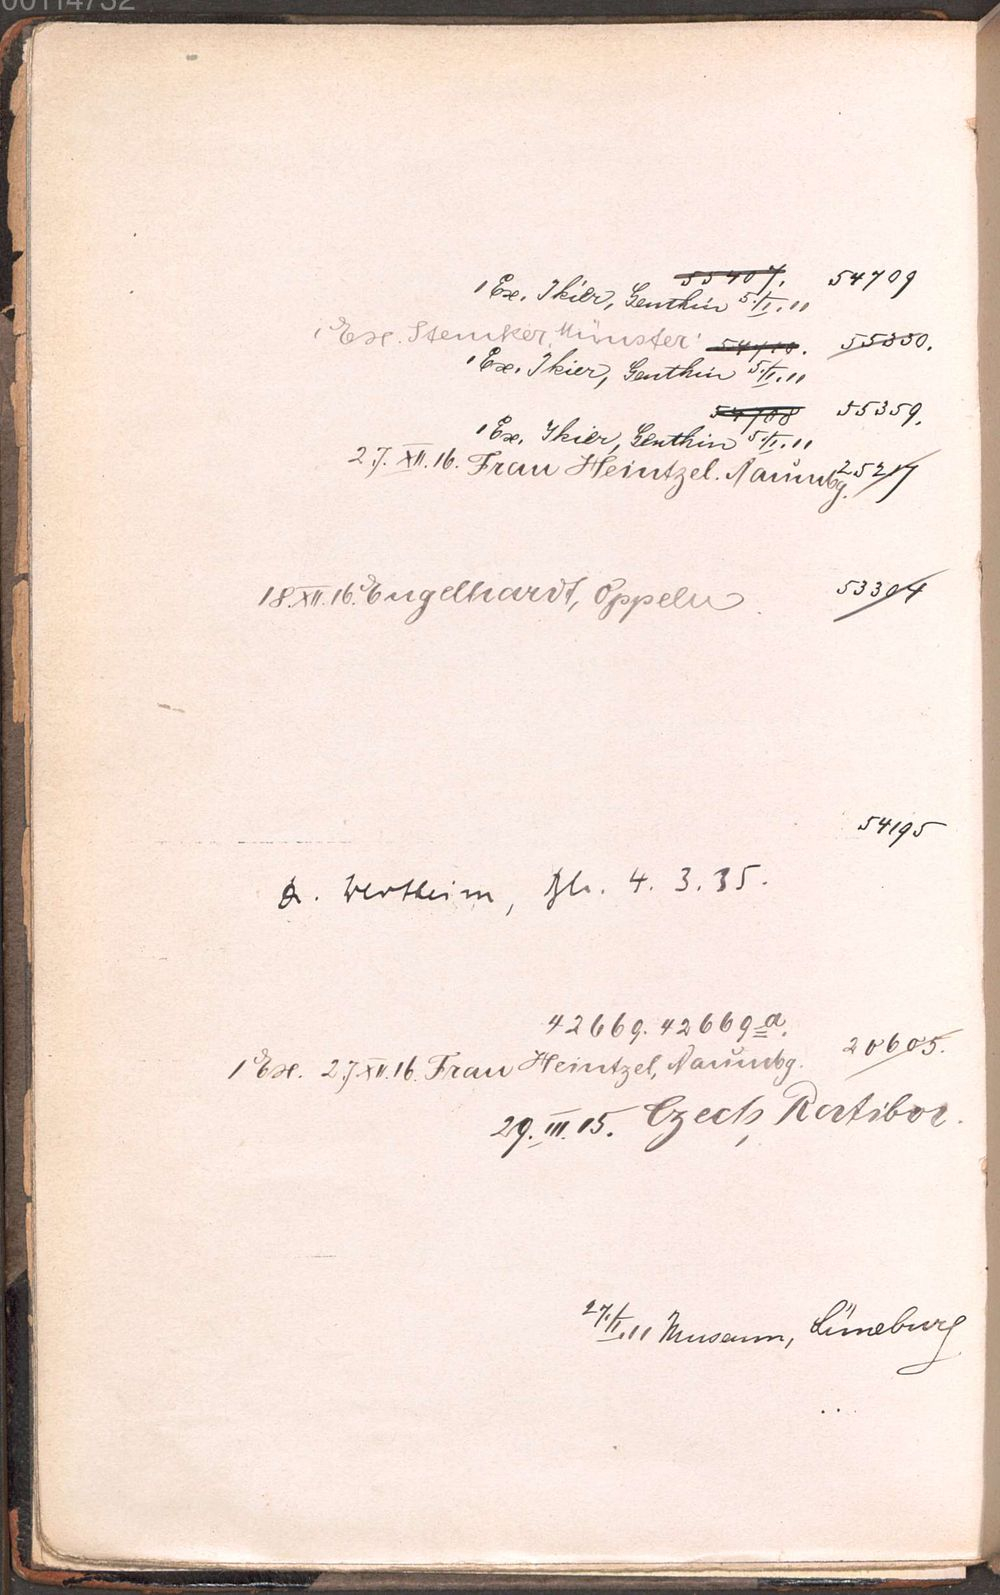 00114732
55407. 54709
1 Ex. Ikier, Genthin 5./I.11
1 Ex. Stemker, Münster 54710. 55350.
1 Ex. Ikier, Genthin 5./I.11
54708 55359.
1 Ex. Ikier, Genthin 5./I.11
27. XII. 16. Frau Heintzel. Naumbg. 25217
18. XII. 16. Engelhardt, Oppeln 53304
54195
A. Wertheim, Bln. 4. 3. 35.
42669. 42669a.
1 Ex. 27. XII. 16. Frau Heintzel, Naumbg. 20605.
29. III. 15. Czech, Ratibor.
27./II.11 Museum, Lüneburg